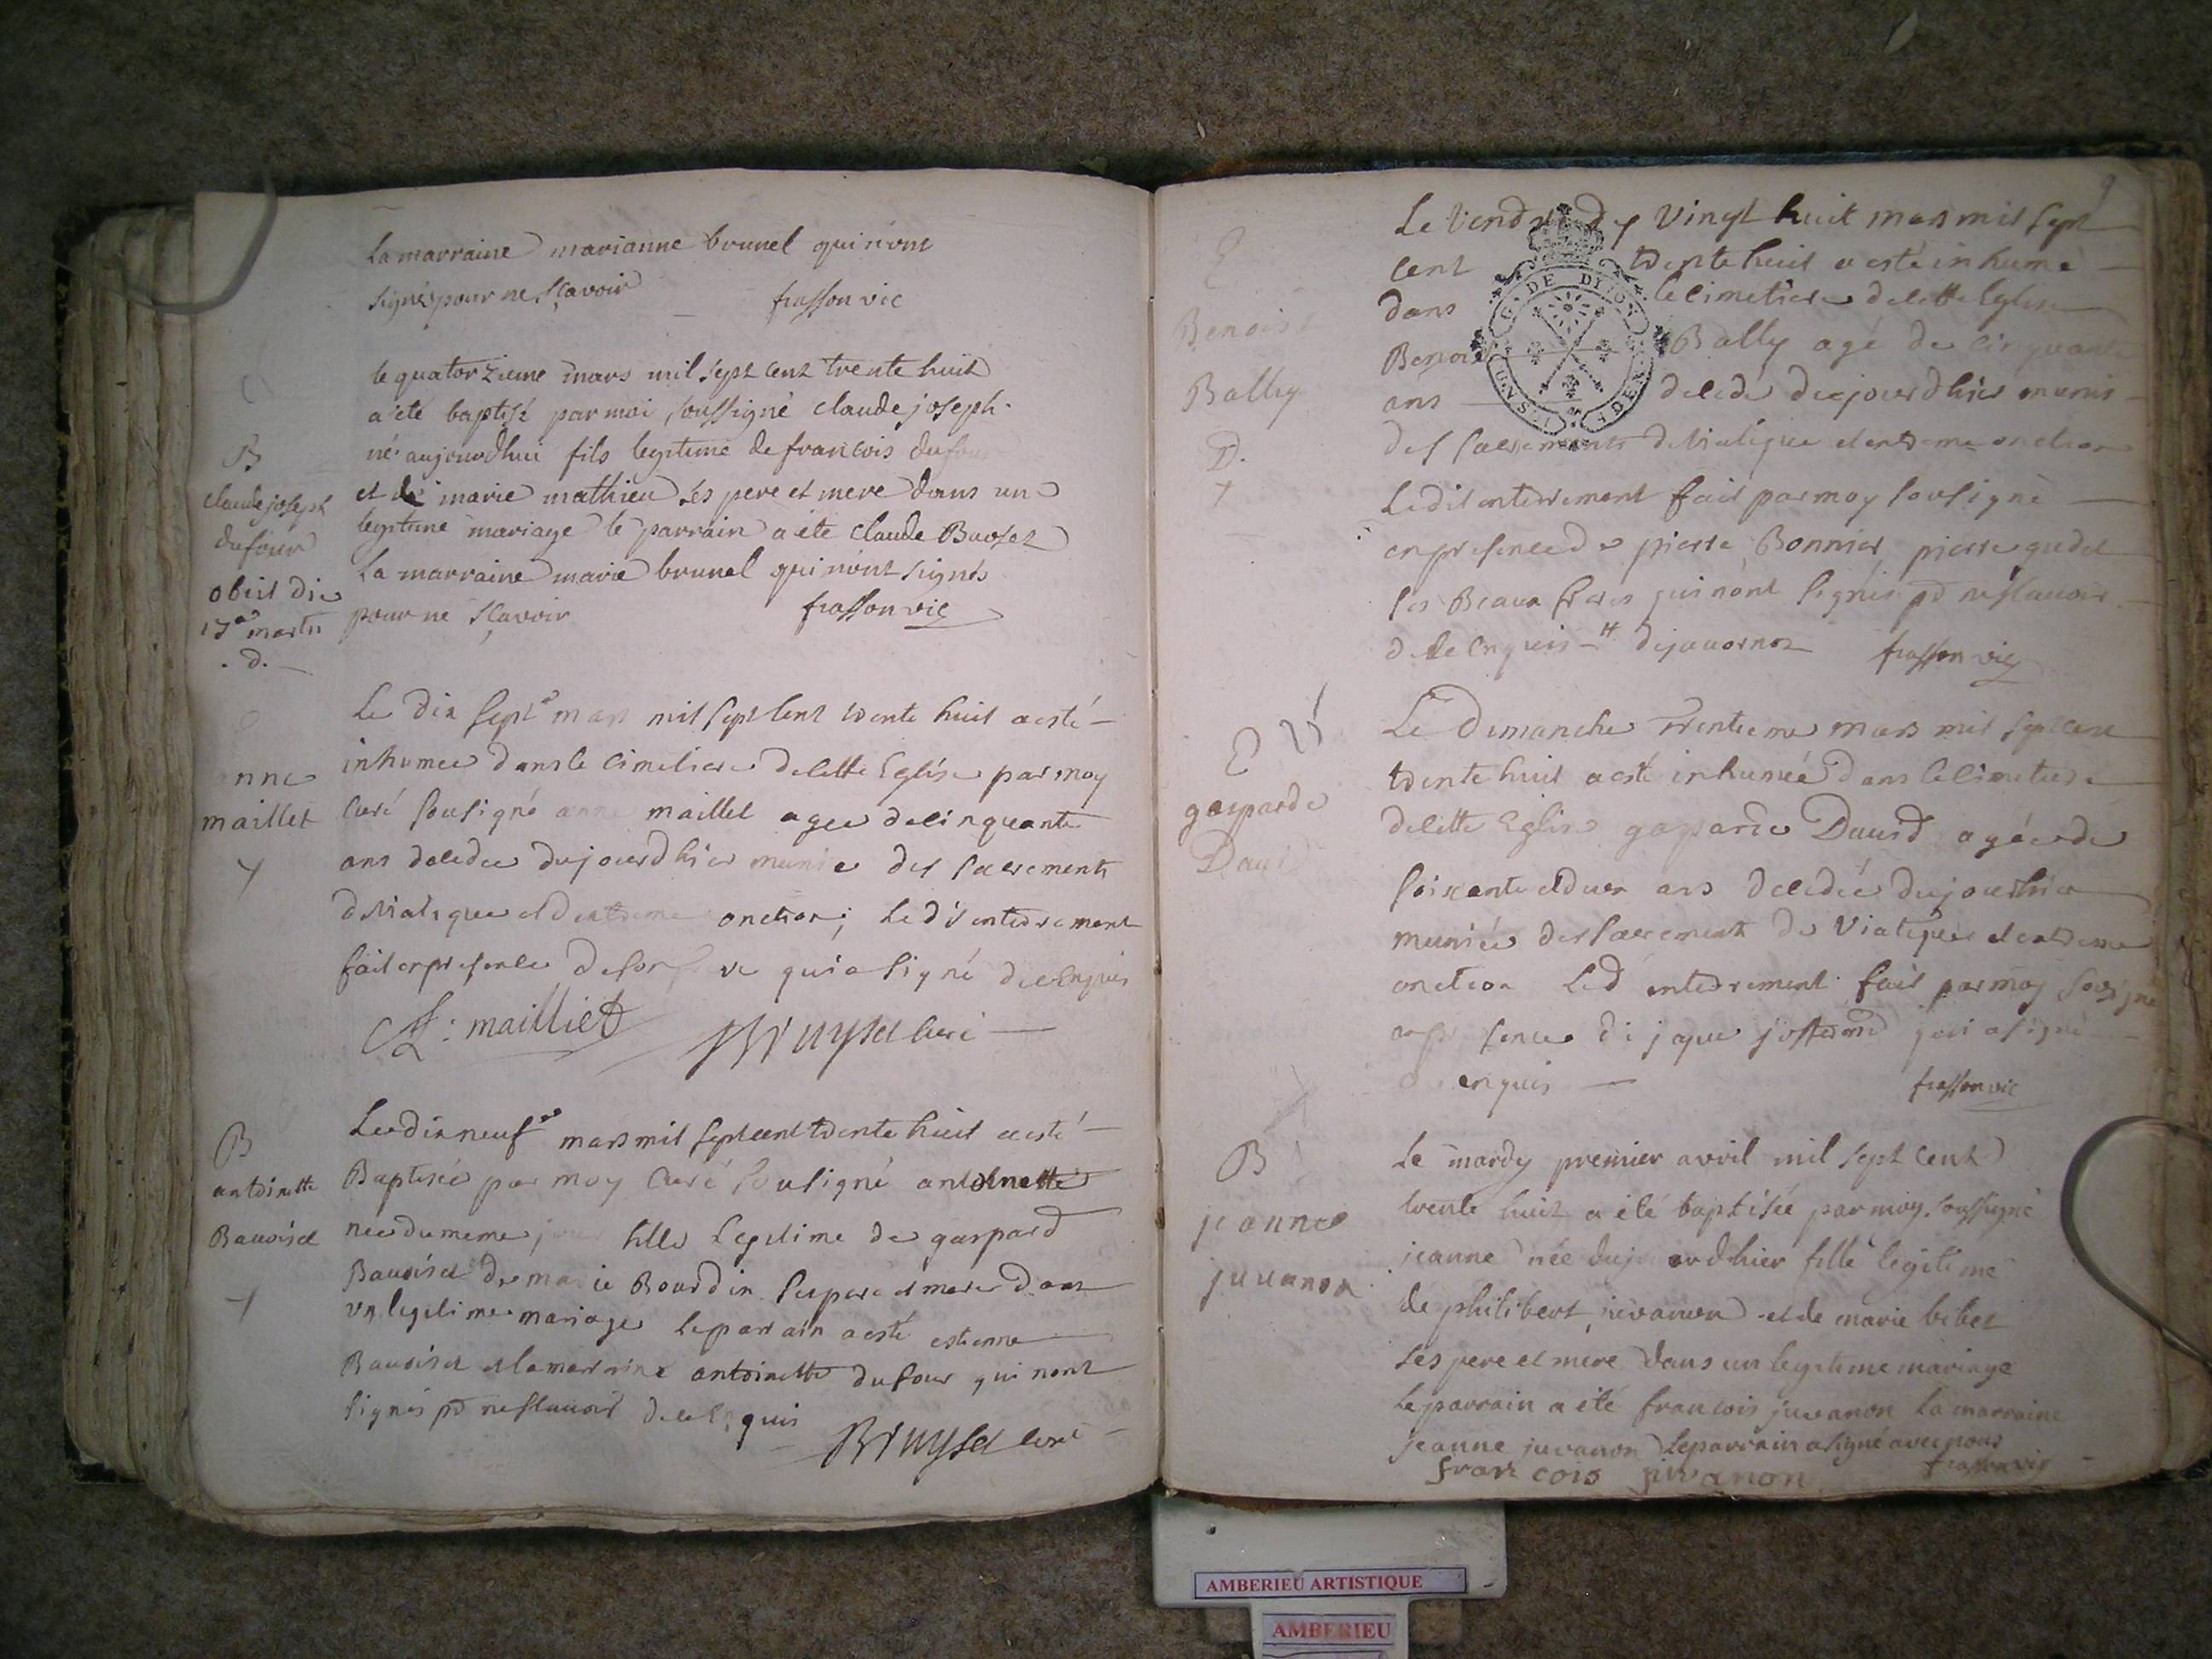 la marraine marianne brunel qui n'ont
signés pour ne sçavoir frasson vic
le quatorzieme mars mil sept cent trente huit
a été baptisé par moi soussigné claude joseph
né aujourdhui fils legitime de francois dufour
et de marie mathieu ses pere et mere dans un
legitime mariage le parrain a été claude
la marraine marie brunel qui n'ont signés
pour ne sçavoir frasson vic
B
claude joseph
dufour
obiit die
17a martii
. d.
Le dix septe mars mil sept cent trente huit a esté
inhumee dans le cimetiere de cette Eglise par moy
curé sousigné anne maillet agee de cinquante
ans decedee du jourdhier munie des sacrements
de viatique et dextreme onction; Ledit enterrement
fait en presence de son qui a signé de ce enquis
mailliet Bruyset curé
nne
maillet
Le dix neufe mars mil sept cent trente huit a esté
Baptisée par moy curé sousigné antoinette
nee du meme jour fille Legitime de gaspard
Bauoiset de marie Bourdin ses pere et mere dans
un legitime mariage le parrain a esté estienne
Bauoiset et la marraine antoinette dufour qui nont
signés pr ne scauoir de ce enquis
Bruyset curé
B
antoinette
Bauoiset
9
Le Vendredy Vingt huit mars mil sept
cent trente huit a esté inhumé
dans le cimetiere de cette Eglise
Benoist Bally agé de
ans decedé du jourdhier munis
des sacrements de viatique et extreme onction
Ledit enterrement fait par moy sousigné
en presence de pierre Bonnier pierre gudet
ses Beaux freres qui nont signés pr ne scauoir
de ce enquis frasson vic
DE DIJON
E
Benoist
Bally
D.
Le Dimanche Trentieme mars mil sept cent
trente huit a esté inhumée dans le cimetiere
de cette Eglise gaspardе Dauid agée de
soixante et deux ans decedée du jourdhier
munie des sacrements de Viatique et extreme
onction Led enterrement fait par moy sousigné
en presence de jaque qui a signé
enquis frasson vic
gasparde
Dauid
Le mardy premier avril mil sept cent
trente huit a été baptisée par moy soussigné
jeanne née du jourdhier fille legitime
de philibert juvanon et de marie bibet
ses pere et mere dans un legitime mariage
le parrain a été francois juvanon la marraine
jeanne juvanon le parrain a signé avec nous
francois juvanon frasson vic
B
jeanne
juuanon
AMBERIEU ARTISTIQUE
AMBERIEU